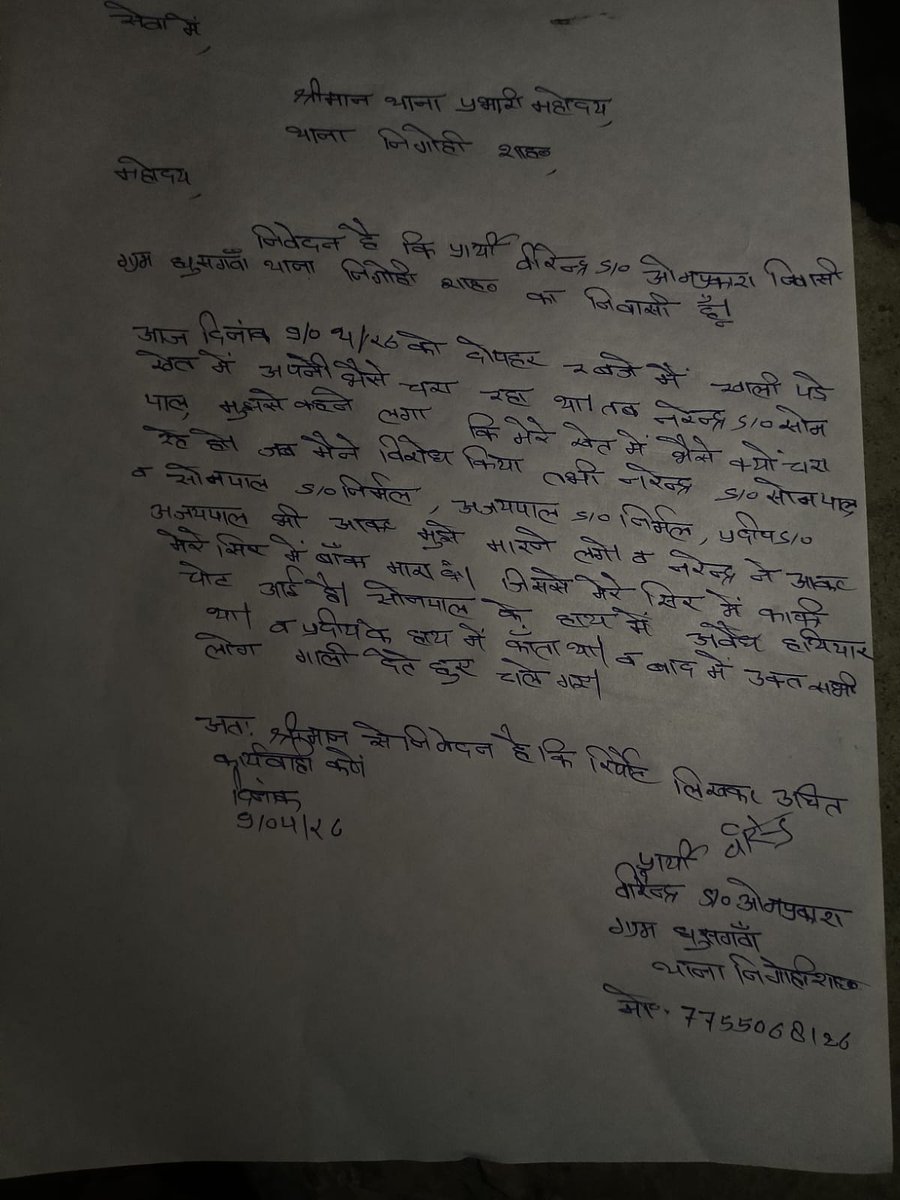 सेवा में,
श्रीमान थाना प्रभारी महोदय,
थाना निगोही शाह०,
महोदय,
निवेदन है कि प्रार्थी वीरेन्द्र S/o ओमप्रकाश निवासी
ग्राम थाना निगोही शाह० का निवासी हूँ।
आज दिनांक को दोपहर २ बजे मैं खाली पडे
खेत में अपनी भैसे चरा रहा था। तब नरेन्द्र S/o सोन
पाल, मुझसे कहने लगा कि मेरे खेत में भैसे क्यों चरा
रहे हो। जब मैने विरोध किया तभी नरेन्द्र S/o सोनपाल,
व सोनपाल S/o निर्मल, अजयपाल S/o निर्मल, प्रदीप S/o
अजयपाल भी आकर मुझे मारने लगे। व नरेन्द्र ने आकर
मेरे सिर में बाँक मारा है। जिससे मेरे सिर में काफी
चोट आई है। सोनपाल के हाथ में अवैध हथियार
था। व प्रदीप के हाथ में काँता था। व बाद में उक्त सभी
लोग गाली देते हुए चले गए।
अतः श्रीमान से निवेदन है कि रिर्पोट लिखकर उचित
कार्यवाही करें
दिनांक
9/04/२6
प्रार्थी
वीरेन्द्र S/o ओमप्रकाश
ग्राम
थाना निगोही शाह०
मो०. 77550681२6